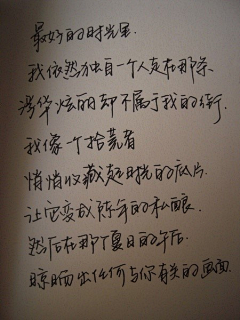 最好的时光里.
我依然独自一个人走在那条.
奢华炫丽却不属于我的街.
我像一个拾荒者
悄悄收藏起时光的底片.
让它变成陈年的私酿.
然后在那个夏日的午后.
晾晒出任何与你有关的画面.